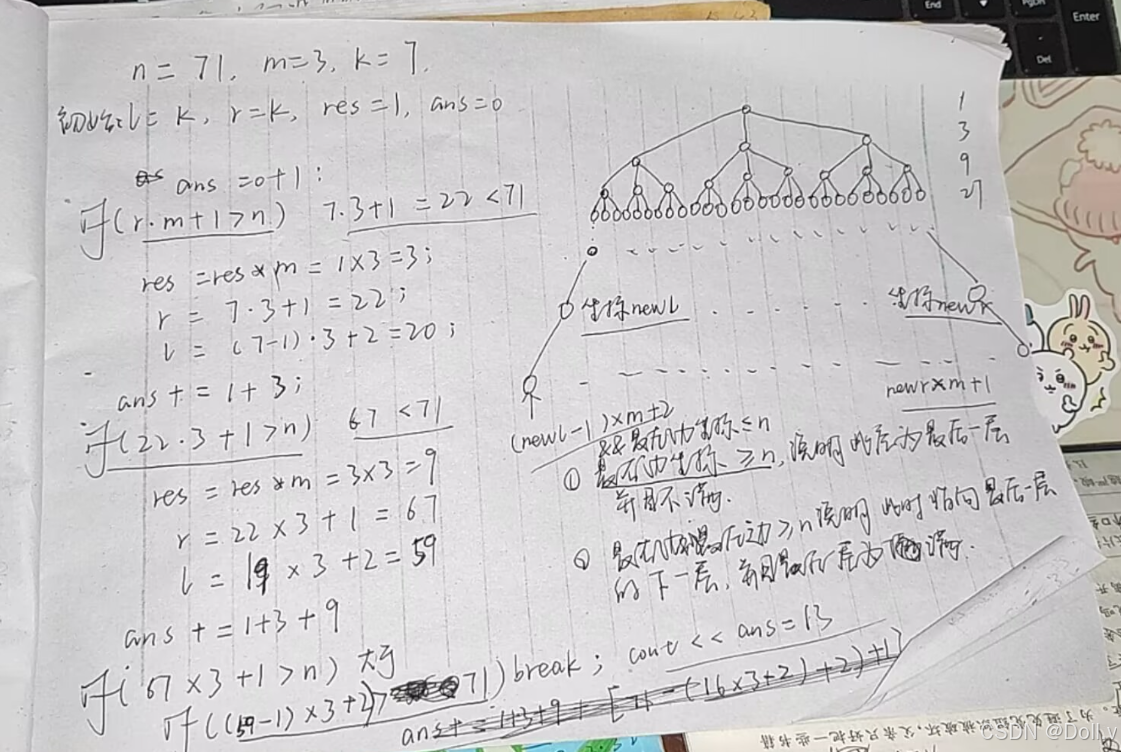 n = 71, m=3, k=7,
初始:l=k, r=k, res=1, ans=0
ans =0+1;
if(r·m+1>n) 7·3+1 =22 <71
res =res*m = 1×3=3;
r = 7·3+1=22;
l = (7-1)·3+2=20;
ans += 1+3;
if(22·3+1>n) 67 <71
res = res*m = 3×3=9
r = 22×3+1 = 67
l = 19×3+2=59
ans += 1+3+9
if(67×3+1>n) 大于
break; cout << ans=13
if((59-1)×3+2)> 71)
ans+=1+3+9+[71-(16×3+2)+2)+1]
1
3
9
27
坐标newl
坐标newr
(newl-1)×m+2
newr×m+1
&&最左边坐标≤n
① 最右边坐标≥n,说明此层为最后一层
并且不满.
② 最左边≥n说明此时指向最后一层
的下一层,并且最后层为满.
End
PgDn
Enter
Del
CSDN @Dolly